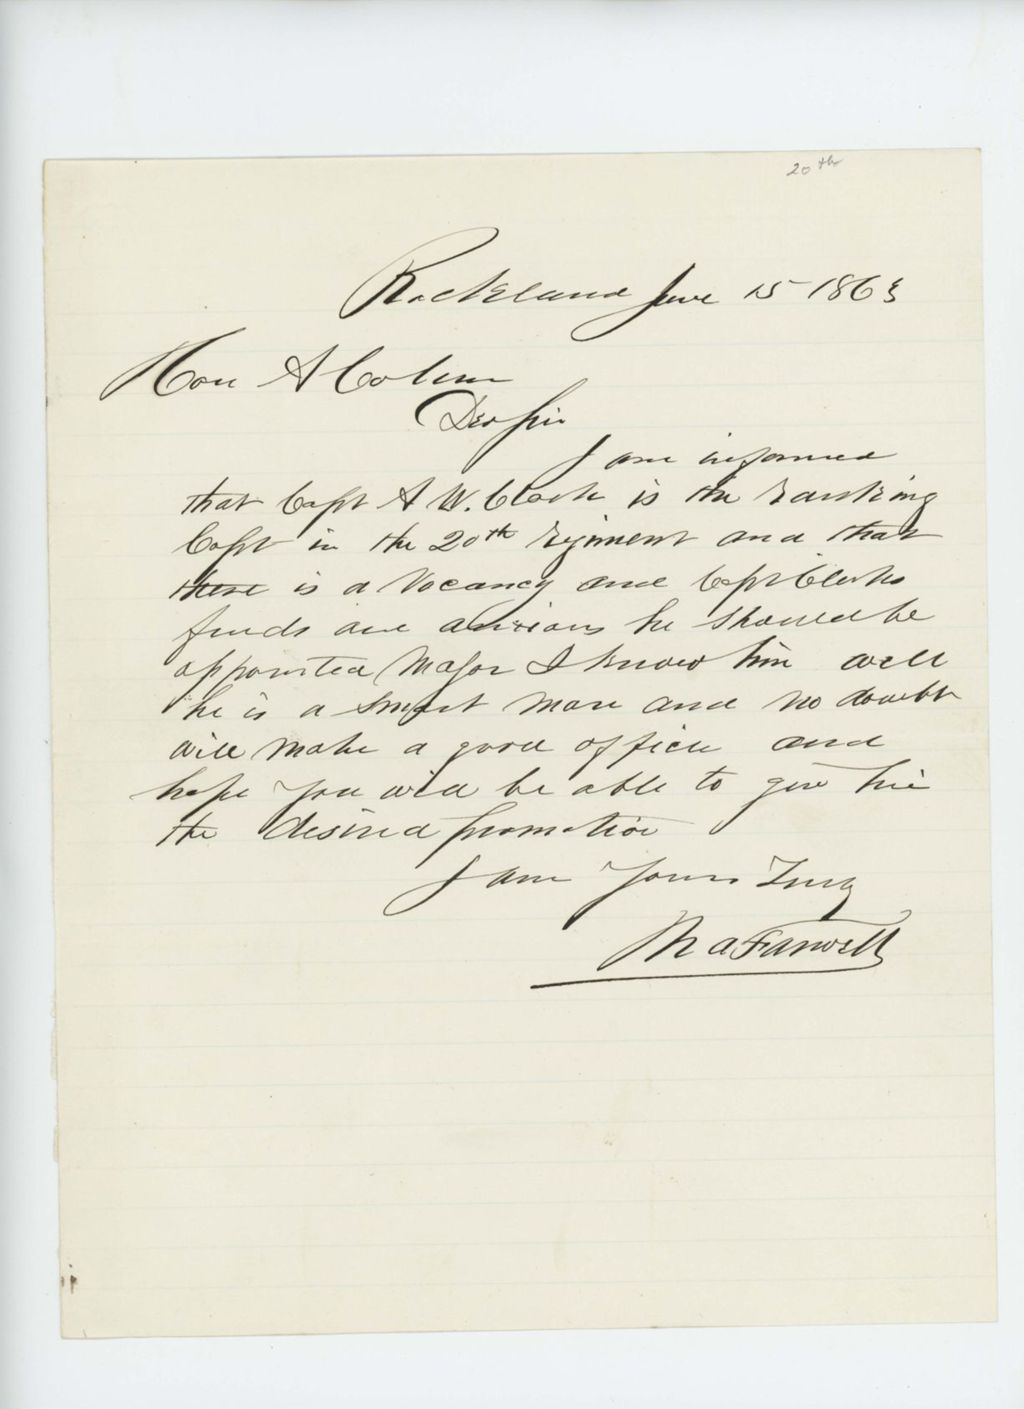 20th
Rockland June 15 1863
Hon A Coburn
Dear Sir
I am informed
that Capt A W. Clark is the ranking
Capt in the 20th regiment and that
there is a vacancy and Capt Clarks
friends are anxious he should be
appointed Major I know him well
he is a smart man and no doubt
will make a good officer and
hope you will be able to give him
the desired promotion
I am Yours Truly
N A Farwell